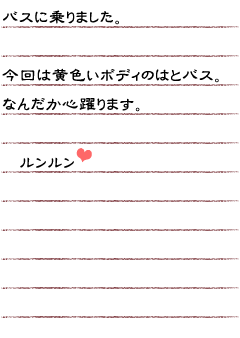 バスに乗りました。
今回は黄色いボディのはとバス。
なんだか心躍ります。
ルンルン